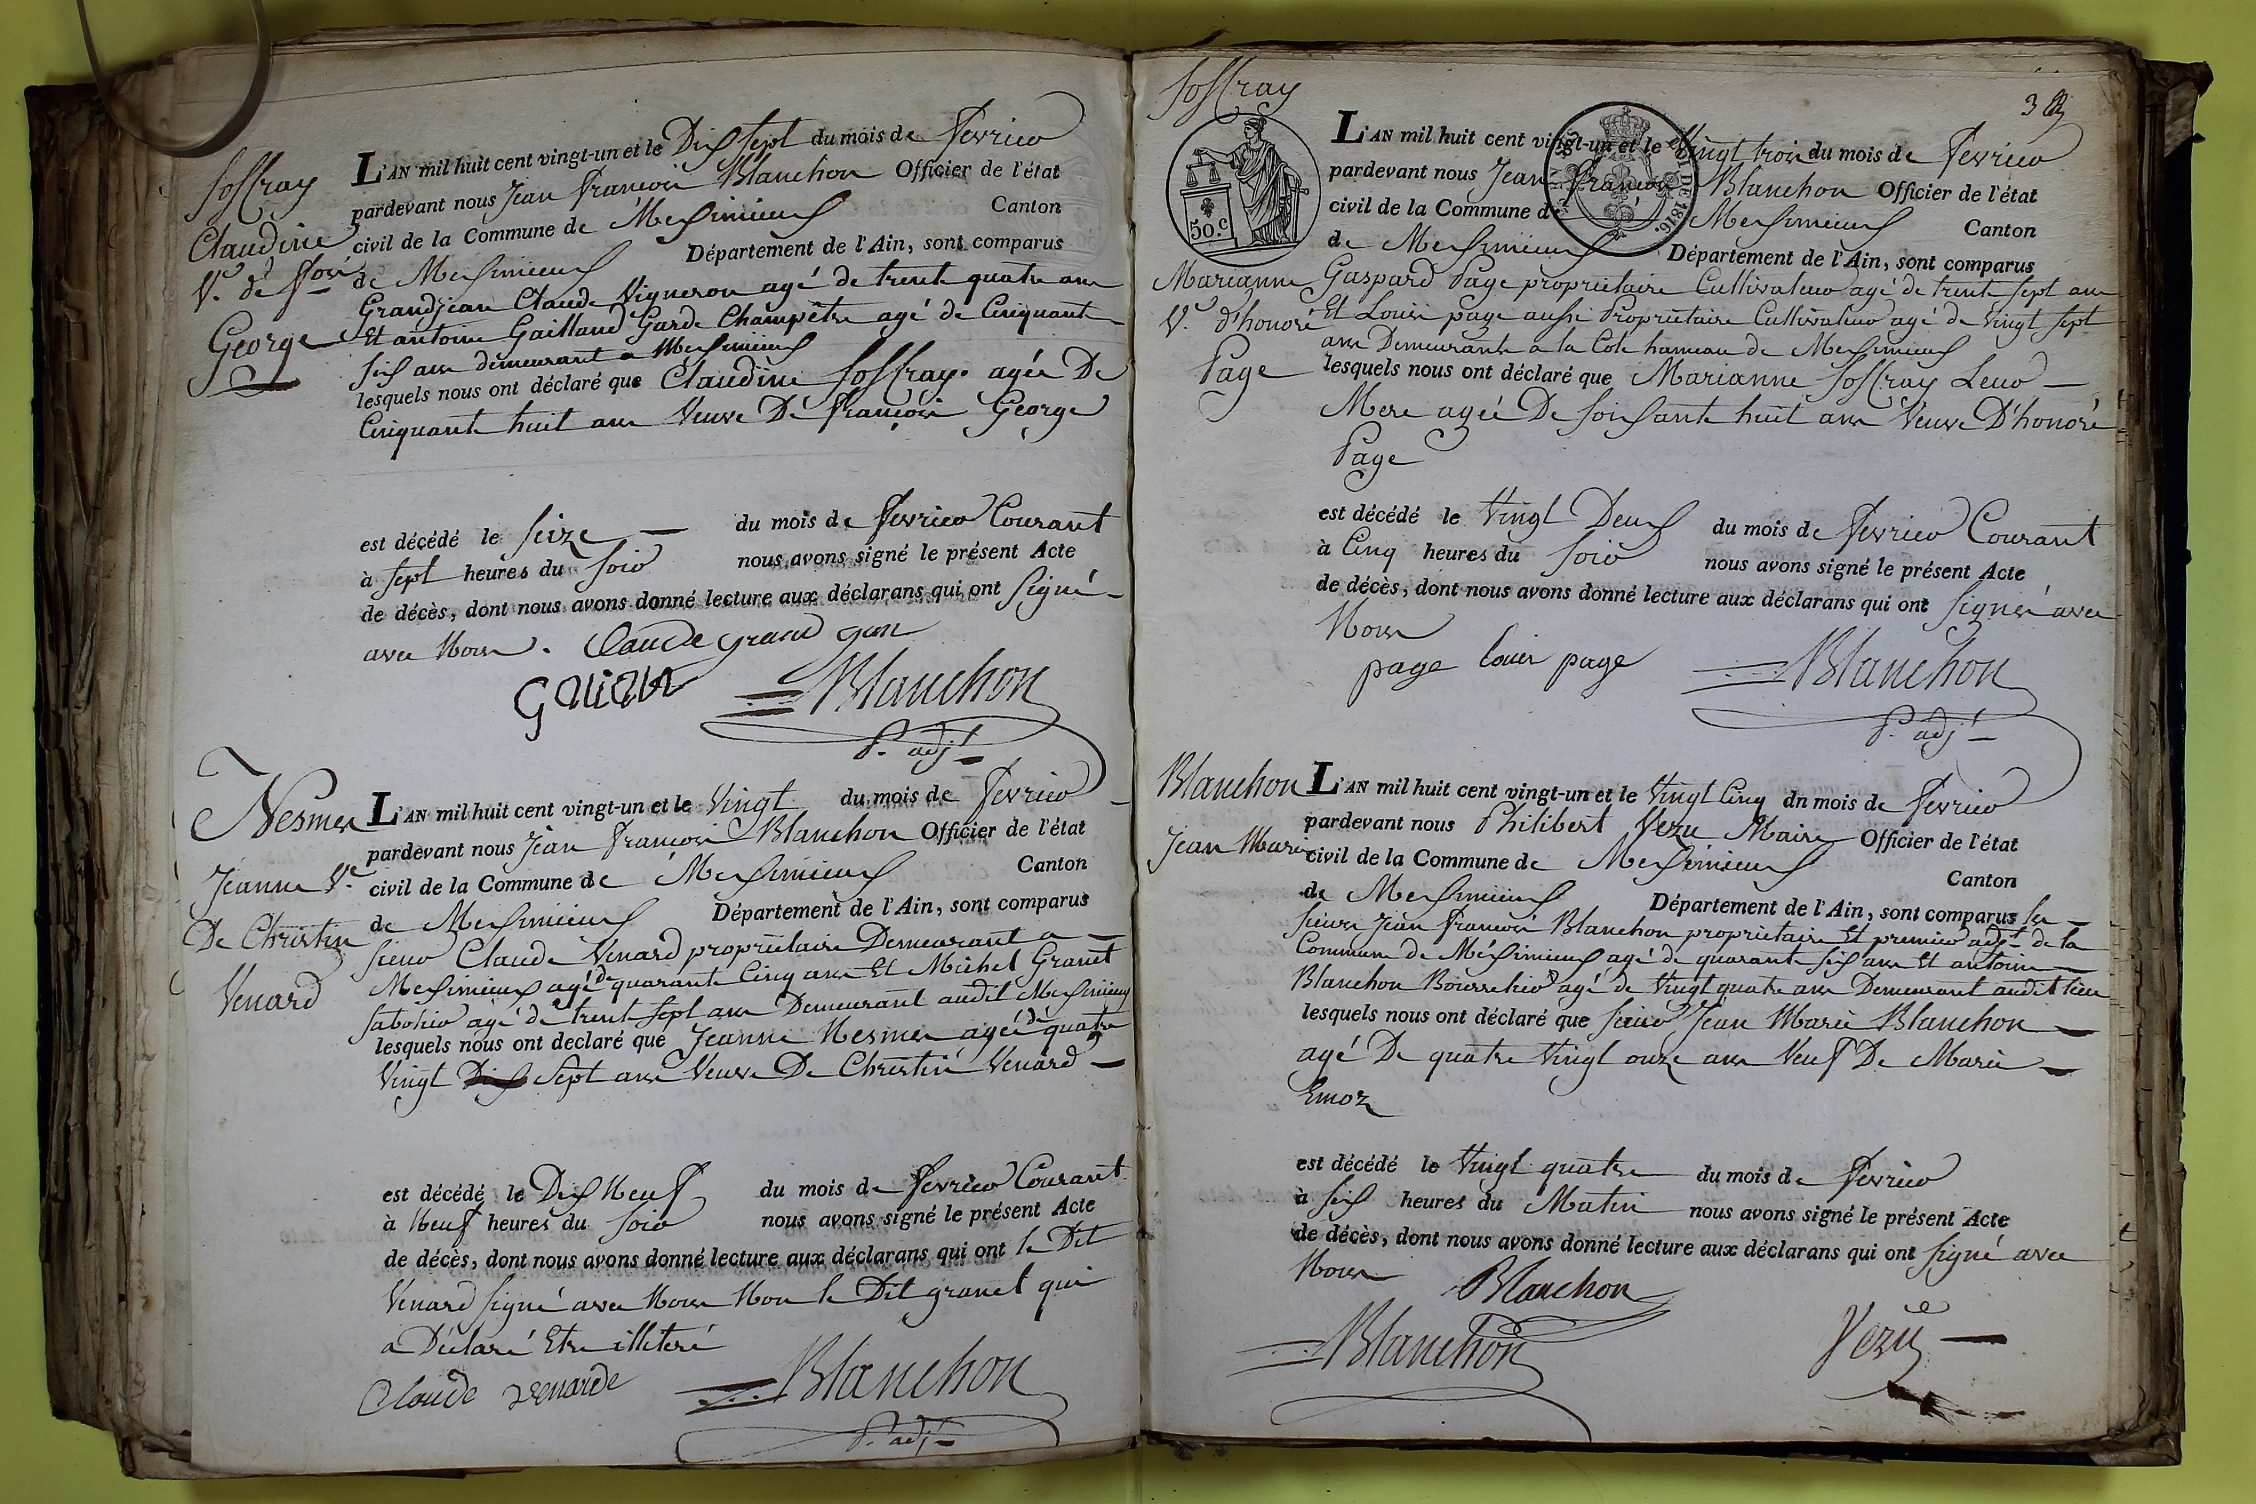 Joffray
Claudine
V.e de f.ois
George
L'AN mil huit cent vingt-un et le Dix Sept du mois de fevrier
pardevant nous Jean françois Blanchon Officier de l'état
civil de la Commune de Messimieux Canton
de Messimieux Département de l'Ain, sont comparus
Grandjean Claude Vigneron agé de trente quatre ans
Et antoine Gailland Garde Champêtre agé de Cinquante
six ans demeurant a Messimieux
lesquels nous ont déclaré que Claudine Joffray agée De
Cinquante huit ans Veuve De françois George
est décédé le Seize du mois de fevrier Courant
à Sept heures du Soir nous avons signé le présent Acte
de décès, dont nous avons donné lecture aux déclarans qui ont Signé
avec Nous. Claude grand gan
Blanchon
P. adj.t
Nesmes
Jeanne V.e
De Christin
Venard
L'AN mil huit cent vingt-un et le Vingt du mois de fevrier
pardevant nous Jean françois Blanchon Officier de l'état
civil de la Commune de Messimieux Canton
de Messimieux Département de l'Ain, sont comparus
Sieur Claude Venard propriétaire Demeurant a
Messimieux agé de quarante Cinq ans Et Michel Granet
Sabotier agé de trente Sept ans Demeurant audit Messimieux
lesquels nous ont declaré que Jeanne Nesmes agée de quatre
Vingt Dix Sept ans Veuve De Christin Venard
est décédé le Dix Neuf du mois de fevrier Courant
à Neuf heures du Soir nous avons signé le présent Acte
de décès, dont nous avons donné lecture aux déclarans qui ont le Dit
Venard Signé avec Nous Non le Dit granet qui
a Déclaré Etre illiteré
Claude venarde Blanchon
P. adj.t
Joffray
50.c
Marianne
V.e d'honoré
Page
L'AN mil huit cent vingt-un et le Vingt trois du mois de fevrier
pardevant nous Jean françois Blanchon Officier de l'état
civil de la Commune de Messimieux Canton
de Messimieux Département de l'Ain, sont comparus
Gaspard Page propriétaire Cultivateur agé de trente Sept ans
Et Louis page aussi Propriétaire Cultivateur agé de Vingt Sept
ans Demeurants a la Cote hameau de Messimieux
lesquels nous ont déclaré que Marianne Joffray Leur
Mere agée De Soixante huit ans Veuve D'honoré
Page
est décédé le Vingt Deux du mois de fevrier Courant
à Cinq heures du Soir nous avons signé le présent Acte
de décès, dont nous avons donné lecture aux déclarans qui ont Signés avec
Nous
page Louis page Blanchon
P. adj.t
Blanchon
Jean Marie
L'AN mil huit cent vingt-un et le Vingt Cinq dn mois de fevrier
pardevant nous Philibert Vezu Maire Officier de l'état
civil de la Commune de Messimieux Canton
de Messimieux Département de l'Ain, sont comparus les
Sieurs Jean françois Blanchon propriétaire Et premier adj.t de la
Commune de Messimieux agé de quarante Six ans Et antoine
Blanchon Bourrelier agé de Vingt quatre ans Demeurant audit lieu
lesquels nous ont déclaré que Sieur Jean Marie Blanchon
agé De quatre Vingt onze ans Veuf De Marie
Emoz
est décédé le Vingt quatre du mois de fevrier
à Six heures du Matin nous avons signé le présent Acte
de décès, dont nous avons donné lecture aux déclarans qui ont Signé avec
Nous Blanchon
Blanchon Vezu